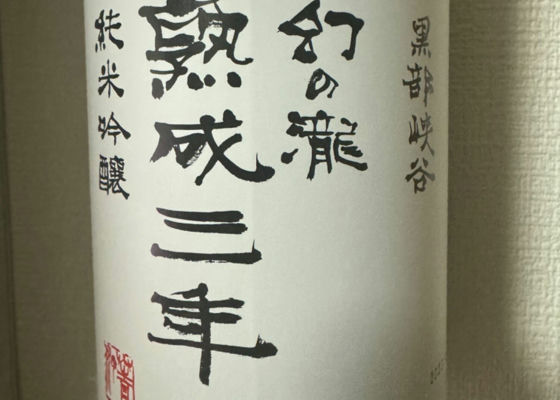 黒部峡谷
幻の瀧
熟成三年
純米吟醸